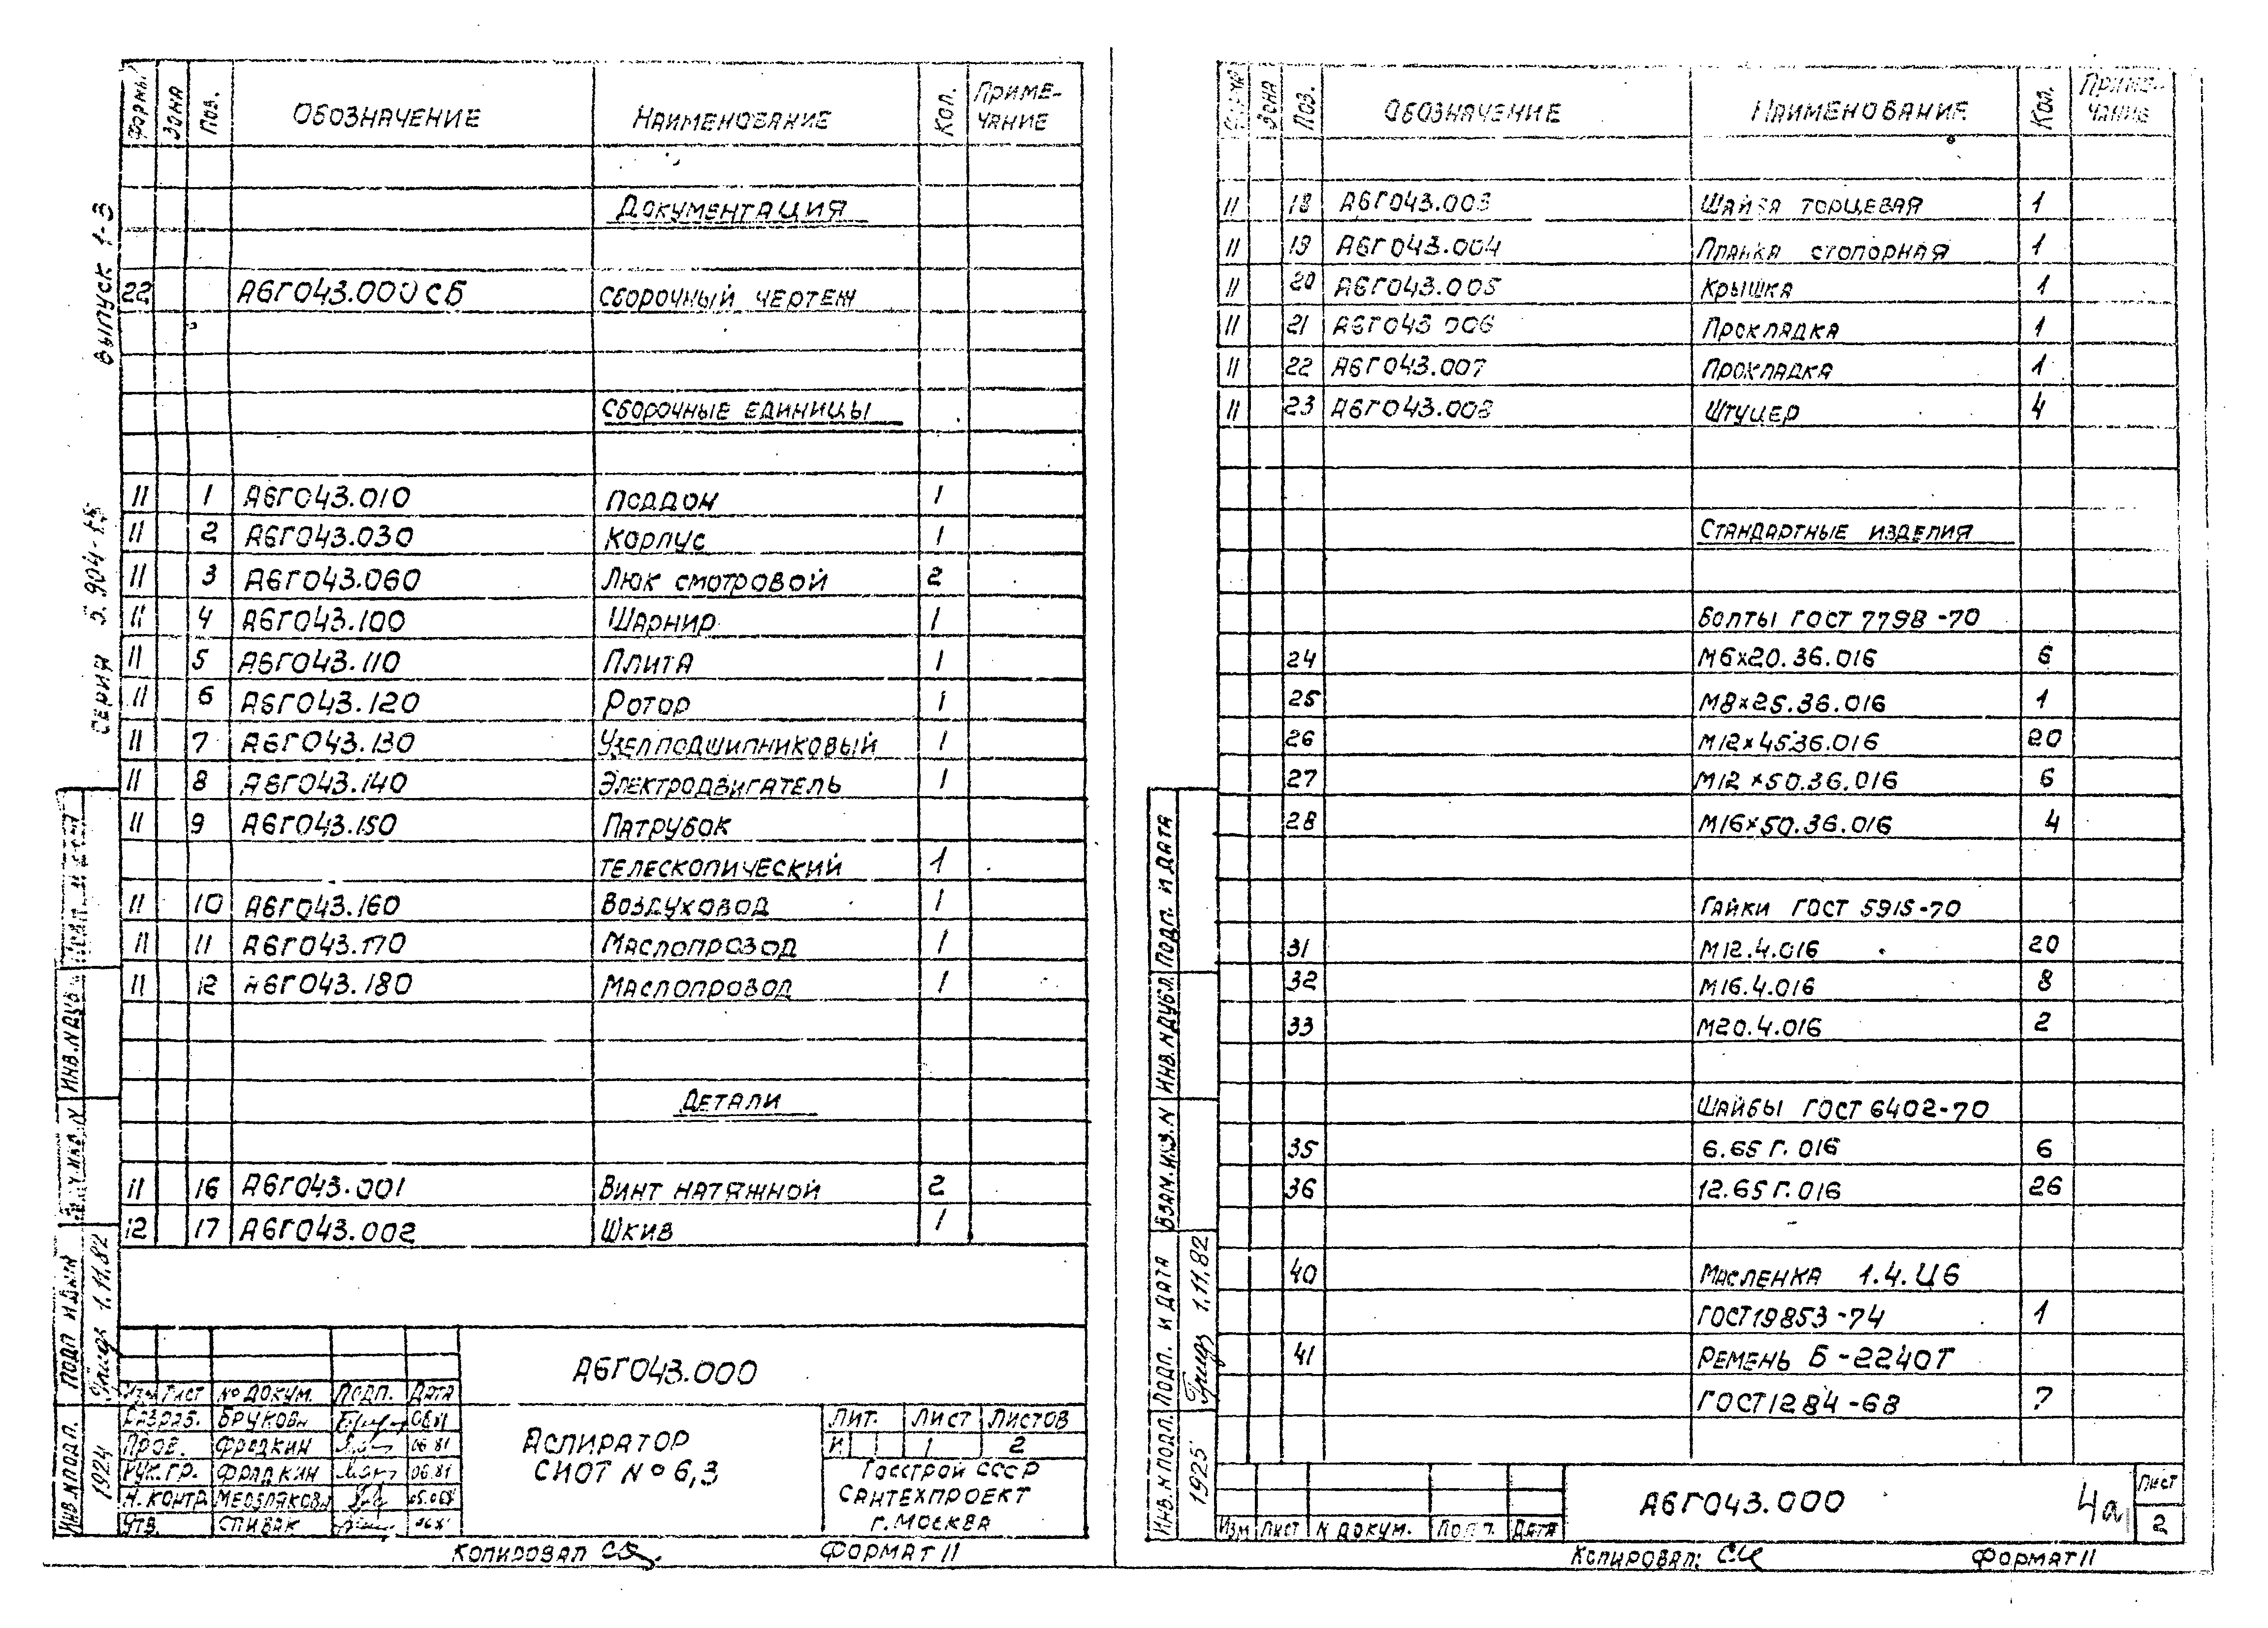 Формат Зона Поз. Обозначение Наименование Кол. Приме-
чание
Документация
22 А6Г043.000 СБ Сборочный чертеж
Сборочные единицы
11 1 А6Г043.010 Поддон 1
11 2 А6Г043.030 Корпус 1
11 3 А6Г043.060 Люк смотровой 2
11 4 А6Г043.100 Шарнир 1
11 5 А6Г043.110 Плита 1
11 6 А6Г043.120 Ротор 1
11 7 А6Г043.130 Узел подшипниковый 1
11 8 А6Г043.140 Электродвигатель 1
11 9 А6Г043.150 Патрубок
телескопический 1
11 10 А6Г043.160 Воздуховод 1
11 11 А6Г043.170 Маслопровод 1
11 12 А6Г043.180 Маслопровод 1
Детали
11 16 А6Г043.001 Винт натяжной 2
12 17 А6Г043.002 Шкив 1
А6Г043.000
Изм Лист № докум. Подп. Дата
Разраб. 06.81
Пров. Фрадкин 06 81
Рук. гр. Фрадкин 06.81
Н. контр.
Утв. Спивак
Аспиратор
СИОТ № 6,3
Лит. Лист Листов
И 1 2
Госстрой СССР
Сантехпроект
г. Москва
Копировал Формат 11
Серия 5.904- Выпуск 1-3
Инв. N подл. Подп и дата Инв. N дубл. Подп. и дата
1924 1.11.82
Зона Поз. Обозначение Наименование Кол. Приме-
чание
11 18 А6Г043.003 Шайба торцевая 1
11 19 А6Г043.004 Планка стопорная 1
11 20 А6Г043.005 Крышка 1
11 21 А6Г043 006 Прокладка 1
11 22 А6Г043.007 Прокладка 1
11 23 А6Г043.008 Штуцер 4
Стандартные изделия
Болты ГОСТ 7798-70
24 М6х20.36.016 6
25 М8х25.36.016 1
26 М12х45.36.016 20
27 М12х50.36.016 6
28 М16х50.36.016 4
Гайки ГОСТ 5915-70
31 М12.4.016 20
32 М16.4.016 8
33 М20.4.016 2
Шайбы ГОСТ 6402-70
35 6.65Г.016 6
36 12.65Г.016 26
40 Масленка 1.4.Ц6
ГОСТ 19853-74 1
41 Ремень Б-2240Т
ГОСТ 1284-68 7
Изм Лист N докум. Подп. Дата
А6Г043.000
4а
Лист
2
Копировал: Формат 11
Инв. N подл. Подп. и дата Взам. инв. N Инв. N дубл. Подп. и дата
1925 1.11.82